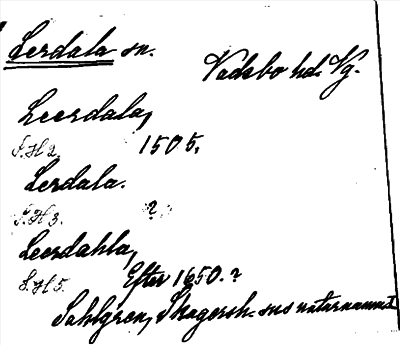 Lerdala sn.
Vadsbo hd. Vg.
Leerdala,
S.H 2. 1505.
Lerdala.
S.H 3. ?
Leerdahla,
S.H 5. Efter 1650.?
Sahlgren, Skagersh. sns naturnamn